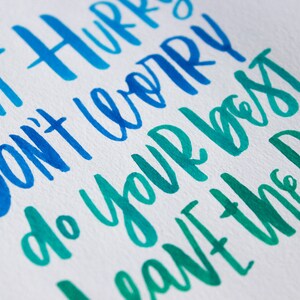 Hurry
Don't worry
do your best
leave the